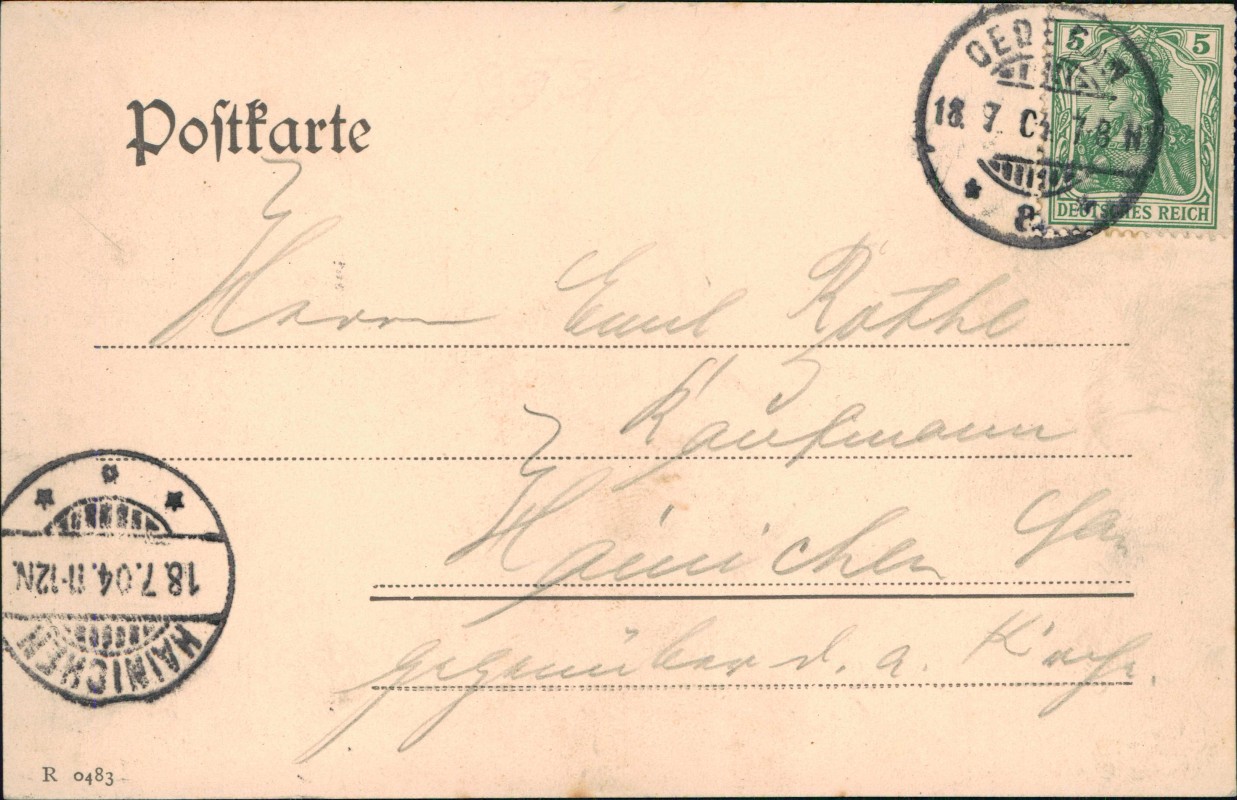 Postkarte
OEDERAN
18. 7. 04. 7-8 N
5 5
DEUTSCHES REICH
Herrn Emil Rothe
Kaufmann
Hainichen
gegenüber d. a.
18.7.04.11-12N.
HAINICHEN
R 0483